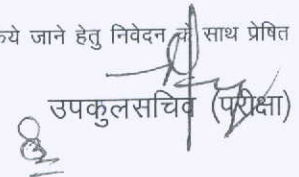 किये जाने हेतु निवेदन के साथ प्रेषित
उपकुलसचिव (परीक्षा)